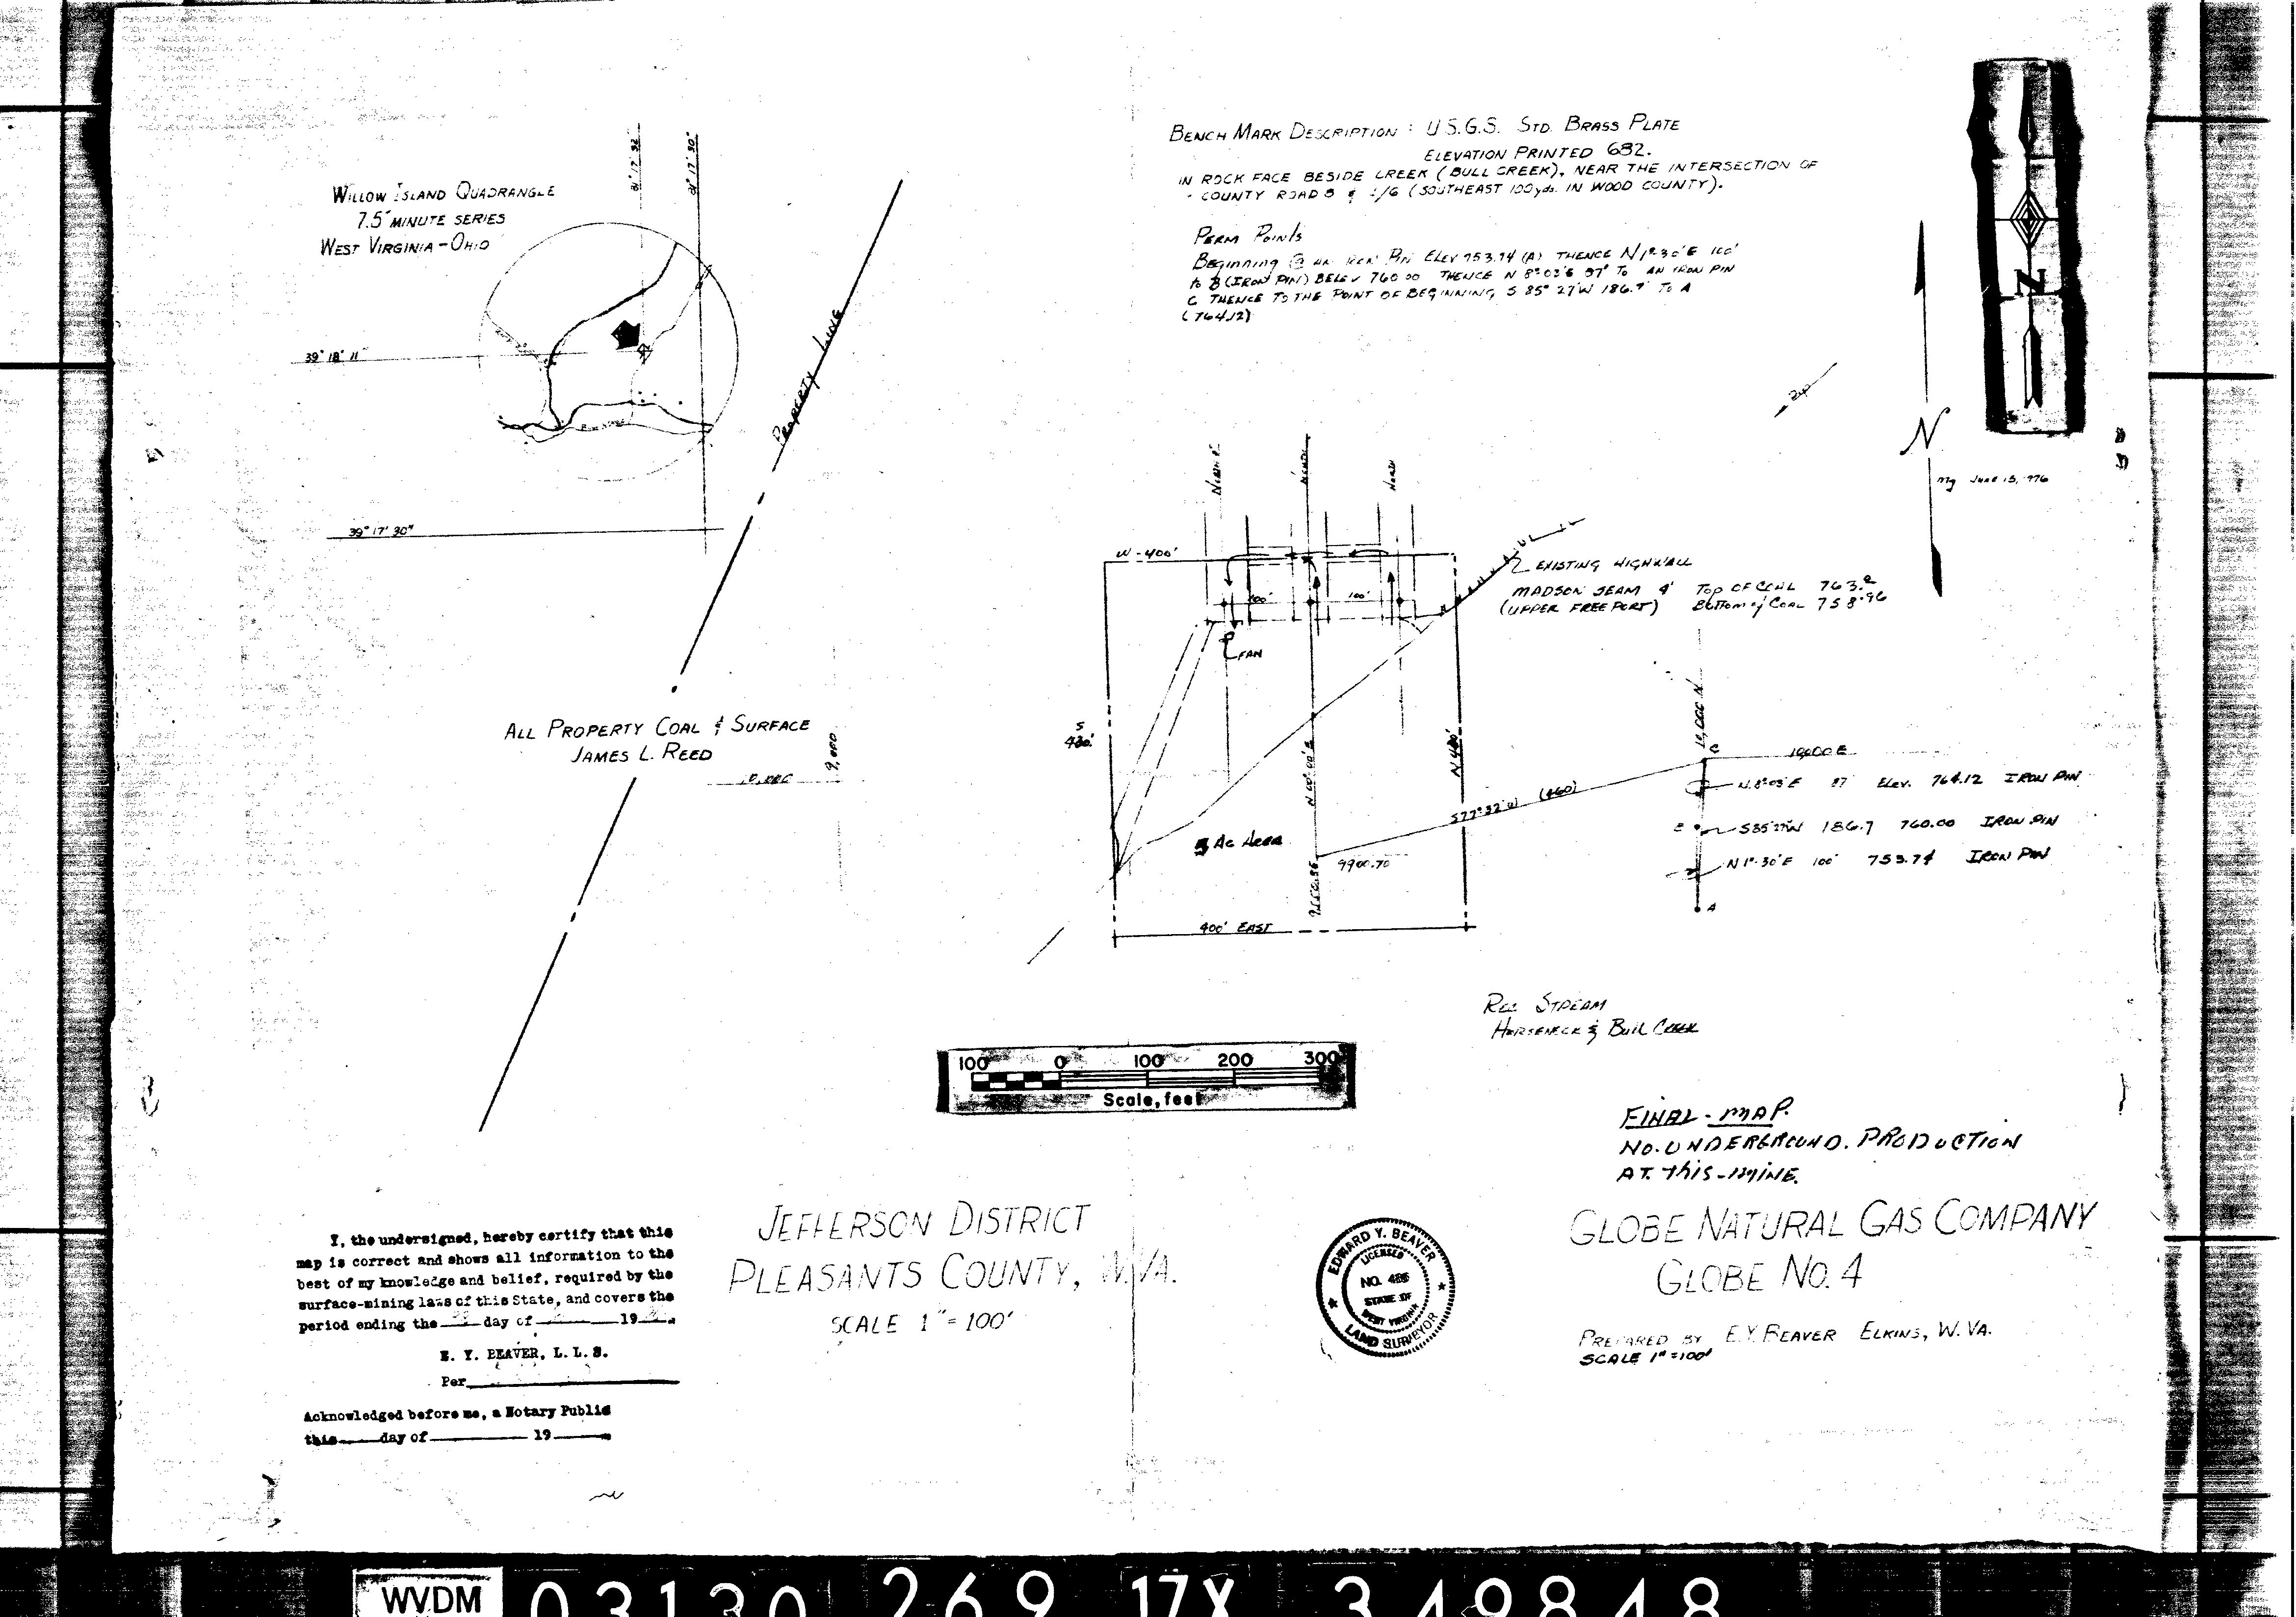 WILLOW ISLAND QUADRANGLE
7.5 MINUTE SERIES
WEST VIRGINIA - OHIO
39° 18' 11"
39° 17' 30"
PROPERTY LINE
BENCH MARK DESCRIPTION : U.S.G.S. STD. BRASS PLATE
ELEVATION PRINTED 682.
IN ROCK FACE BESIDE CREEK (BULL CREEK), NEAR THE INTERSECTION OF
COUNTY ROAD (SOUTHEAST 100 yds. IN WOOD COUNTY).
PERM POINTS
Beginning @ AN IRON PIN ELEV 753.74 (A) THENCE N 1° 30' E 100'
to B (IRON PIN) B ELEV 760.00 THENCE N 8° 03' E 87' TO AN IRON PIN
C THENCE TO THE POINT OF BEGINNING, S 85° 27' W 186.7' TO A
(764.12)
N
N
JUNE 15, 1976
NORTH
NORTH
W - 400'
100'
100'
FAN
EXISTING HIGHWALL
MADSON SEAM 4' TOP OF COAL 763.
(UPPER FREEPORT) BOTTOM of COAL 758.96
S
430'
N 00° 00' E
S 77° 32' W (460)
5 AC AREA
9900.70
400' EAST
10,000 N
C
10,000 E
N 8° 03' E 87' ELEV. 764.12 IRON PIN
S 85° 27' W 186.7 760.00 IRON PIN
N 1° 30' E 100' 753.74 IRON PIN
A
ALL PROPERTY COAL & SURFACE
JAMES L. REED
REC STREAM
HORSENECK & BULL CREEK
100 0 100 200 300
Scale, feet
FINAL - MAP.
NO. UNDERGROUND. PRODUCTION
AT. THIS - MINE.
GLOBE NATURAL GAS COMPANY
GLOBE NO. 4
PREPARED BY E.Y. BEAVER ELKINS, W. VA.
SCALE 1" = 100'
JEFFERSON DISTRICT
PLEASANTS COUNTY, W. VA.
SCALE 1" = 100'
EDWARD Y. BEAVER
LICENSED
NO. 486
STATE OF
WEST VIRGINIA
LAND SURVEYOR
I, the undersigned, hereby certify that this
map is correct and shows all information to the
best of my knowledge and belief, required by the
surface-mining laws of this State, and covers the
period ending the day of 19
E. Y. BEAVER, L. L. S.
Per
Acknowledged before me, a Notary Public
this day of 19
WVDM 03130 269 17X 349848